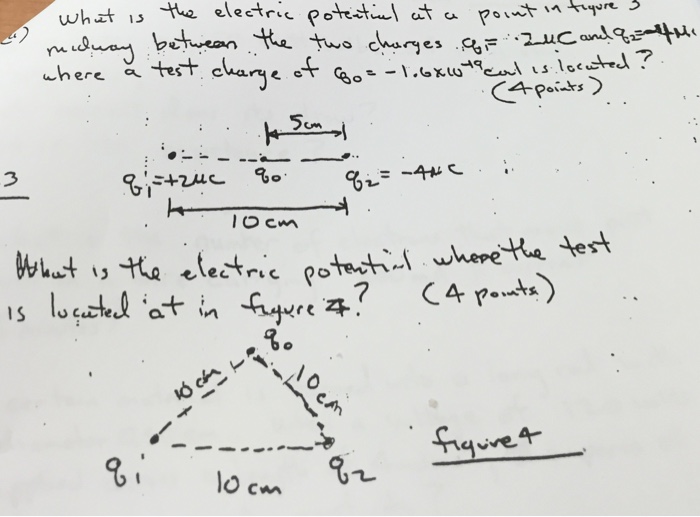 What is the electric potential at a point in figure 3
midway between the two charges q1= 2μC and q2=-4μC
where a test charge of q0= -1.6x10^-19 coul is located?
(4 points)
5cm
3
q1=+2μC q0 q2= -4μC
10 cm
What is the electric potential where the test
is located at in figure 4? (4 points)
q0
10 cm
10 cm
q1
q2
10 cm
figure 4